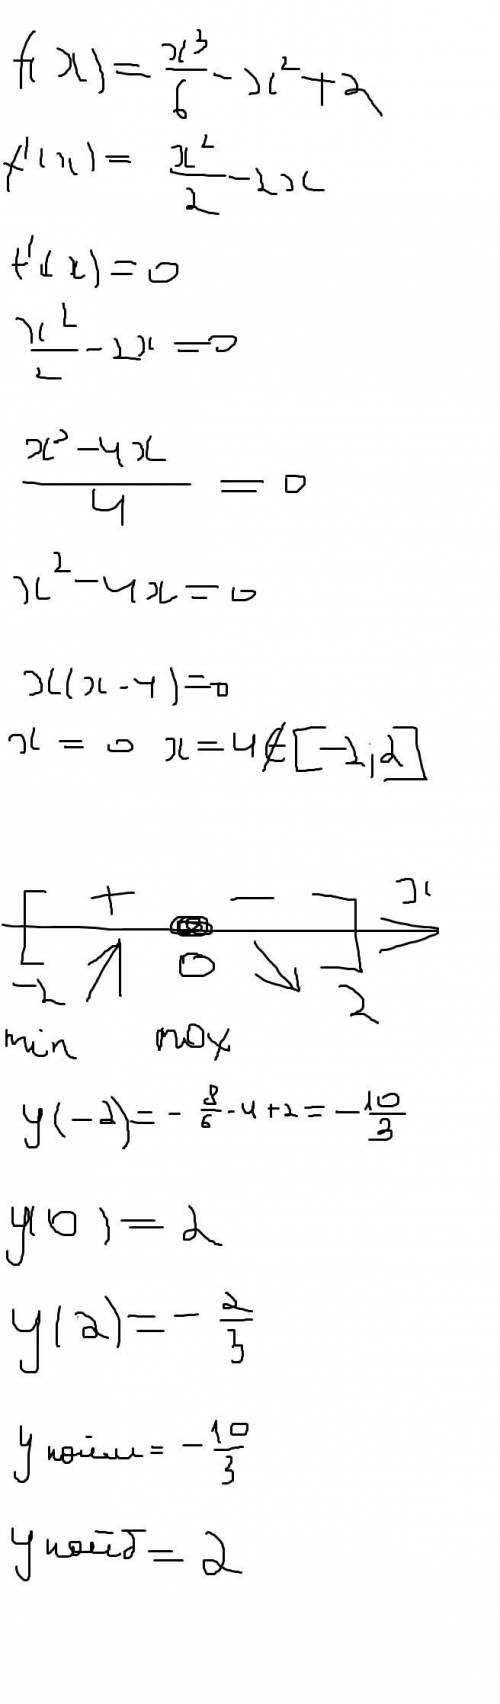 f(x) = x³/6 - x² + 2
f'(x) = x²/2 - 2x
f'(x) = 0
x²/2 - 2x = 0
x² - 4x / 4 = 0
x² - 4x = 0
x(x - 4) = 0
x = 0 x = 4 ∉ [-2; 2]
+ - x
-2 0 2
min max
y(-2) = - 8/6 - 4 + 2 = - 10/3
y(0) = 2
y(2) = - 2/3
y наим = - 10/3
y наиб = 2